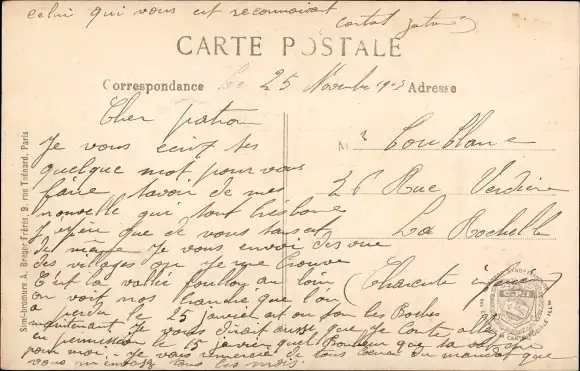 celui qui vous est reconnaisant
CARTE POSTALE
Correspondance Le 25 Novembre Adresse
Cher patron
Je vous écrit ses
quelque mot pour vous
faire savoir de mes
nouvelle qui sont
que de vous
de même Je vous envoi des vue
des villages ou je me trouve
C'est la vallée au loin
on voit nos tranchée que l'on
a perdu le 25 janvier
maintenant Je vous dirait aussi que Je conte aller
en permission le 15 janvier quel Bonheur que sa
pour moi Je vous remercie de tous coeur du mandat que
vous m'envoyez tous les mois.
Mr Coublanc
26 Rue Verdière
La Rochelle
(Charente inférieure)
Simi-bromure A. Breger Frères, 9, rue Thénard, Paris